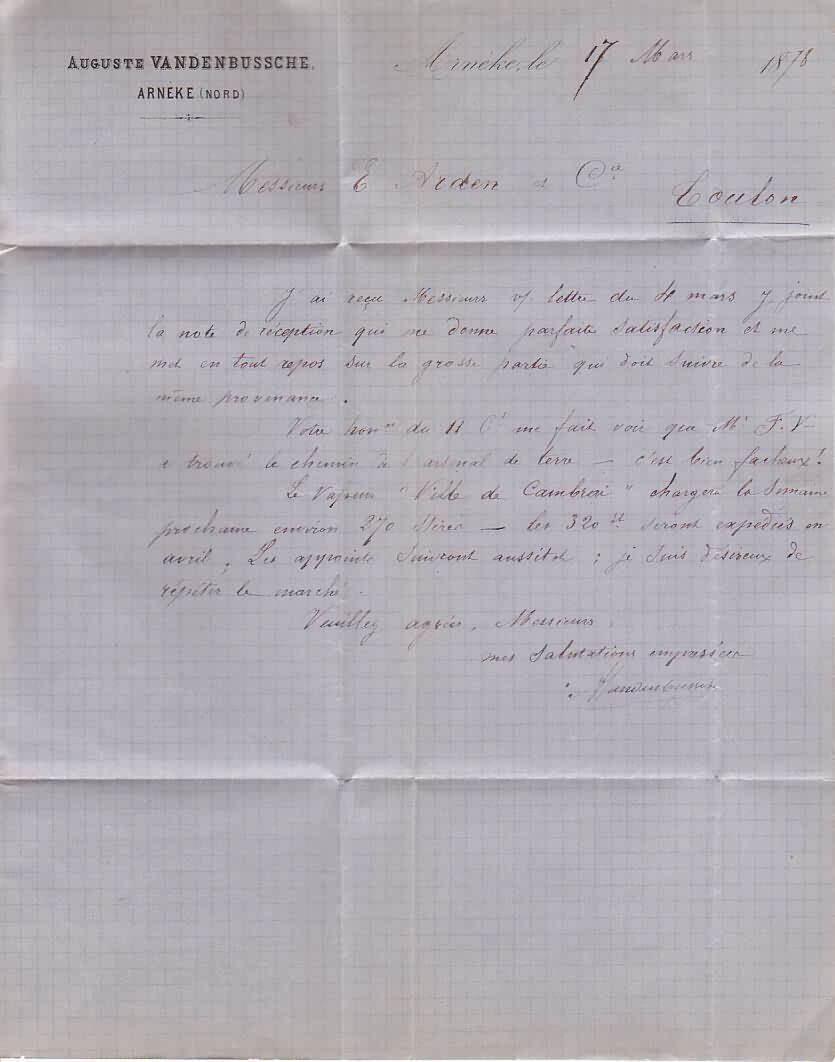 AUGUSTE VANDENBUSSCHE,
ARNEKE (NORD)
Arnèke, le 17 Mars 1878
Messieurs E Arden et Cie
Toulon
J'ai reçu Messieurs v/ lettre du mars y joint
la note de réception qui me donne parfaite satisfaction et me
met en tout repos sur la grosse partie qui doit suivre de la
même provenance.
Votre honrée du 11 Ct me fait voir que Mr F. V-
a trouvé le chemin de l'arsenal de terre — c'est bien facheux!
Le Vapeur "Ville de Cambrai" chargera la Semaine
prochaine environ 270 Stères — les 320 st. seront expediés en
avril. Les appoints suivront aussitot ; je suis désireux de
répéter le marché.
Veuillez agréer, Messieurs,
mes salutations empressées
Vandenbussche